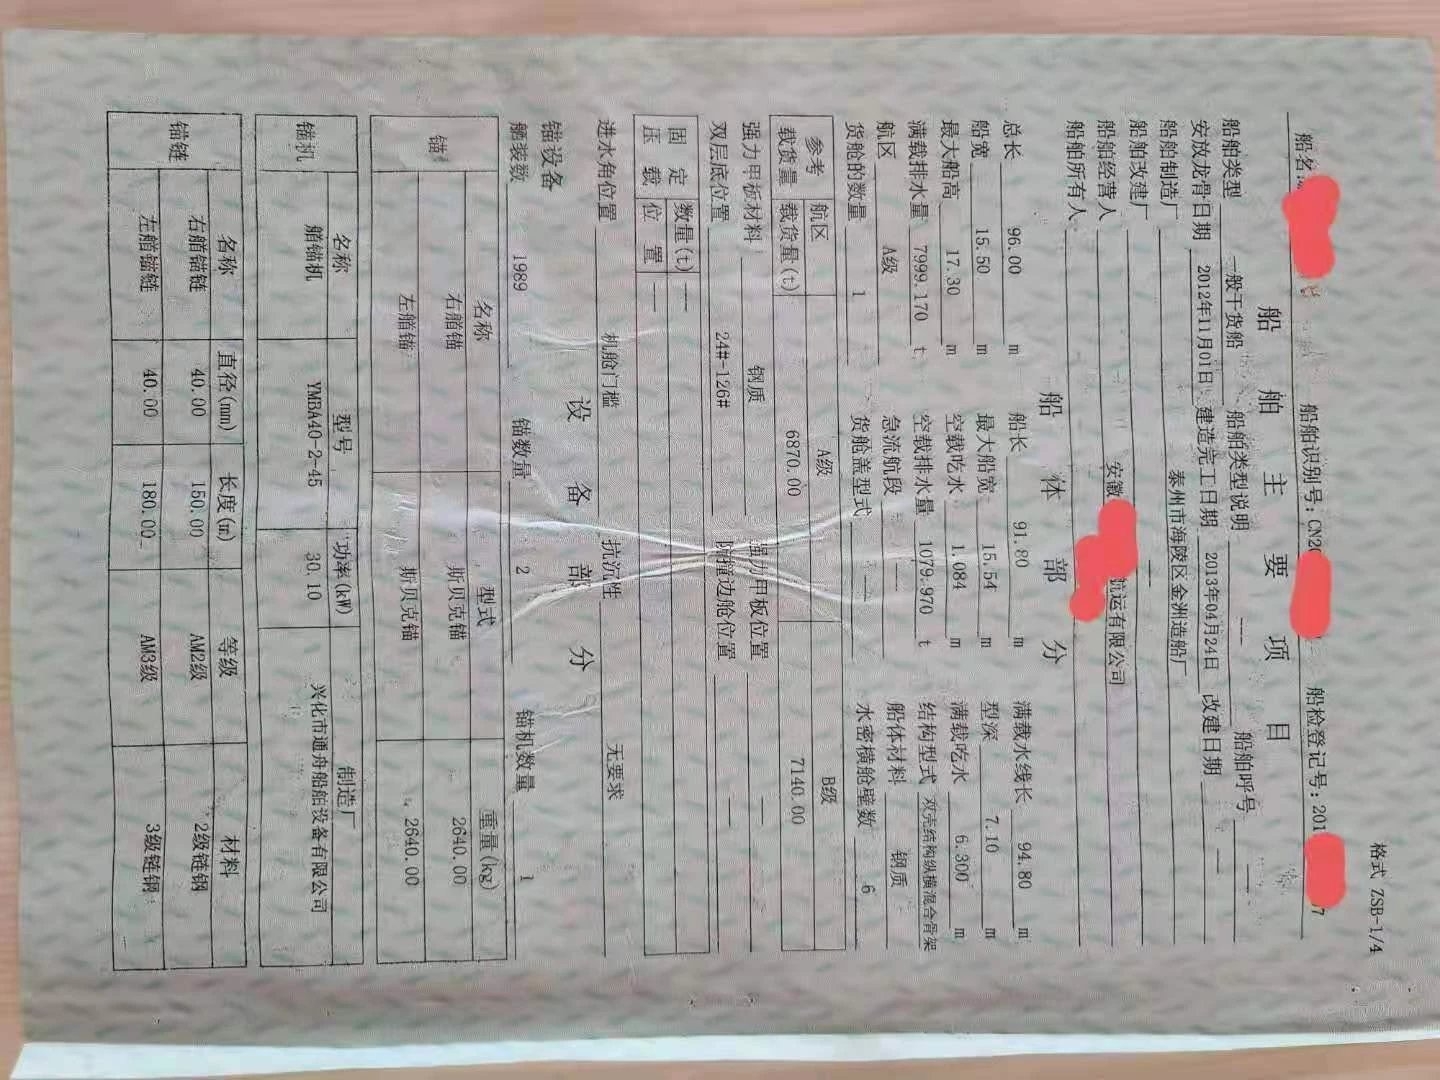 格式 ZSB-1/4
船名: 船舶识别号: CN20 船检登记号: 201 7
船舶主要项目
船舶类型 一般干货船 船舶类型说明 — 船舶呼号 —
安放龙骨日期 2012年11月01日 建造完工日期 2013年04月24日 改建日期 —
船舶制造厂 泰州市海陵区金洲造船厂
船舶改建厂 —
船舶经营人 安徽 航运有限公司
船舶所有人
船体部分
总长 96.00 m 船长 91.80 m 满载水线长 94.80 m
船宽 15.50 m 最大船宽 15.54 m 型深 7.10 m
最大船高 17.30 m 空载吃水 1.084 m 满载吃水 6.300 m
满载排水量 7999.170 t 空载排水量 1079.970 t 结构型式 双壳结构纵横混合骨架
航区 A级 急流航段 — 船体材料 钢质
货舱的数量 1 货舱盖型式 — 水密横舱壁数 6
参考载货量 航区 A级 B级
载货量(t) 6870.00 7140.00
强力甲板材料 钢质 强力甲板位置 —
双层底位置 24#-126# 防撞边舱位置 —
固定压载 数量(t) —
位置 —
进水角位置 机舱门槛 抗沉性 无要求
设备部分
锚设备
舾装数 1989 锚数量 2 锚机数量 1
锚 名称 型式 重量(kg)
右艏锚 斯贝克锚 2640.00
左艏锚 斯贝克锚 2640.00
锚机 名称 型号 功率(kW) 制造厂
艏锚机 YMBA40-2-45 30.10 兴化市通舟船舶设备有限公司
锚链 名称 直径(mm) 长度(m) 等级 材料
右艏锚链 40.00 150.00 AM2级 2级链钢
左艏锚链 40.00 180.00 AM3级 3级链钢